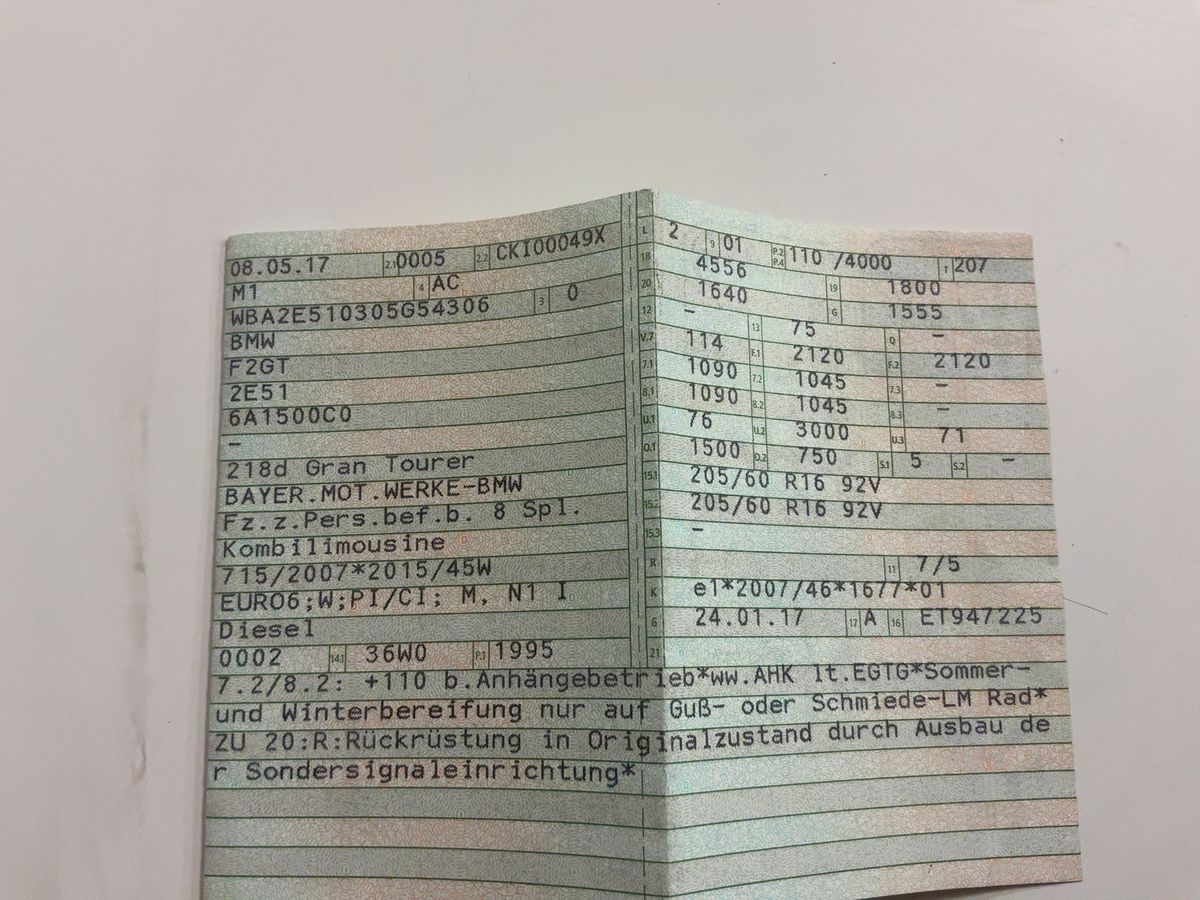 08.05.17 2.1 0005 2.2 CKI00049X
M1 4 AC
WBA2E510305G54306 3 0
BMW
F2GT
2E51
6A1500C0
–
218d Gran Tourer
BAYER.MOT.WERKE-BMW
Fz.z.Pers.bef.b. 8 Spl.
Kombilimousine
715/2007*2015/45W
EURO6;W;PI/CI; M, N1 I
Diesel
0002 14.1 36W0 P.1 1995
L 2 9 01 P.2 P.4 110 /4000 T 207
18 4556 19 1800
20 1640 G 1555
12 – 13 75 Q –
V.7 114 F.1 2120 F.2 2120
7.1 1090 7.2 1045 7.3 –
8.1 1090 8.2 1045 8.3 –
U.1 76 U.2 3000 U.3 71
O.1 1500 O.2 750 S.1 5 S.2 –
15.1 205/60 R16 92V
15.2 205/60 R16 92V
15.3 –
R 11 7/5
K e1*2007/46*1677*01
6 24.01.17 17 A 16 ET947225
21
7.2/8.2: +110 b.Anhängebetrieb*ww.AHK lt.EGTG*Sommer-
und Winterbereifung nur auf Guß- oder Schmiede-LM Rad*
ZU 20:R:Rückrüstung in Originalzustand durch Ausbau de
r Sondersignaleinrichtung*